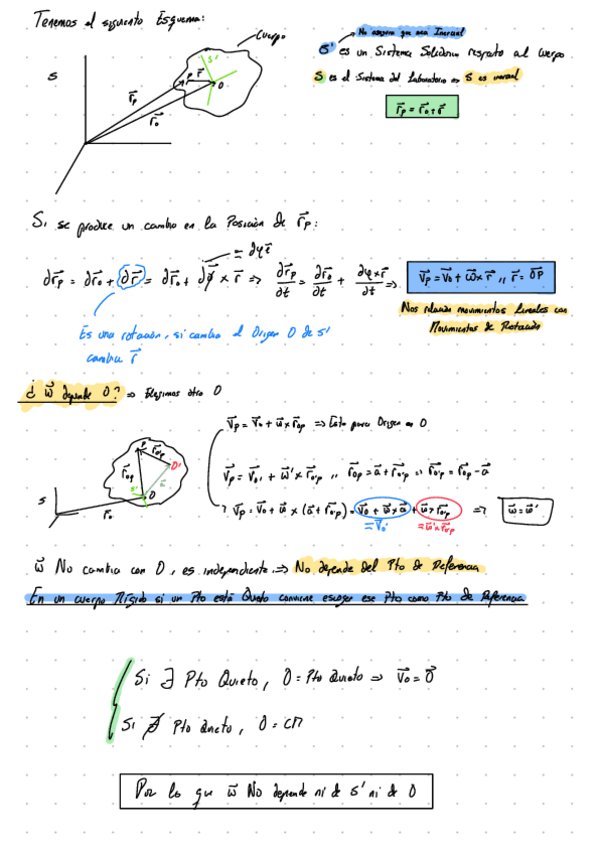 Tenemos el siguiente Esquema:
Cuerpo
No asegura que sea Inercial
S' es un Sistema Solidario respecto al Cuerpo
S es el Sistema del Laboratorio => S es inercial
S
S'
P r⃗ O
r⃗p
r⃗o
r⃗p = r⃗o + r⃗
Si se produce un cambio en la Posición de r⃗p:
= ∂φ r⃗
∂r⃗p = ∂r⃗o + ∂r⃗ = ∂r⃗o + ∂φ⃗ × r⃗ => ∂r⃗p/∂t = ∂r⃗o/∂t + ∂φ×r⃗/∂t => v⃗p = v⃗o + ω⃗ × r⃗ ,, r⃗ = OP
Nos relacionan movimientos lineales con
Movimientos de Rotación
Es una rotación, si cambia el Origen O de S'
cambia r⃗
¿ ω⃗ depende O? => Elegimos otro O
v⃗p = v⃗o + ω⃗ × r⃗op => Esto para Origen en O
v⃗p = v⃗o' + ω⃗' × r⃗o'p ,, r⃗op = a⃗ + r⃗o'p => r⃗o'p = r⃗op - a⃗
v⃗p = v⃗o + ω⃗ × (a⃗ + r⃗o'p) = v⃗o + ω⃗ × a⃗ + ω⃗ × r⃗o'p => ω⃗ = ω⃗'
= v⃗o'
= ω⃗' × r⃗o'p
P
r⃗o'p
O'
r⃗op
a⃗
S'
O
S
r⃗o
ω⃗ No cambia con O, es independiente => No depende del Pto de Referencia
En un cuerpo Rígido si un Pto está Quieto conviene escoger ese Pto como Pto de Referencia
Si ∃ Pto Quieto, O = Pto Quieto => v⃗o = 0⃗
Si ∄ Pto Quieto, O = CM
Por lo que ω⃗ No depende ni de S' ni de O